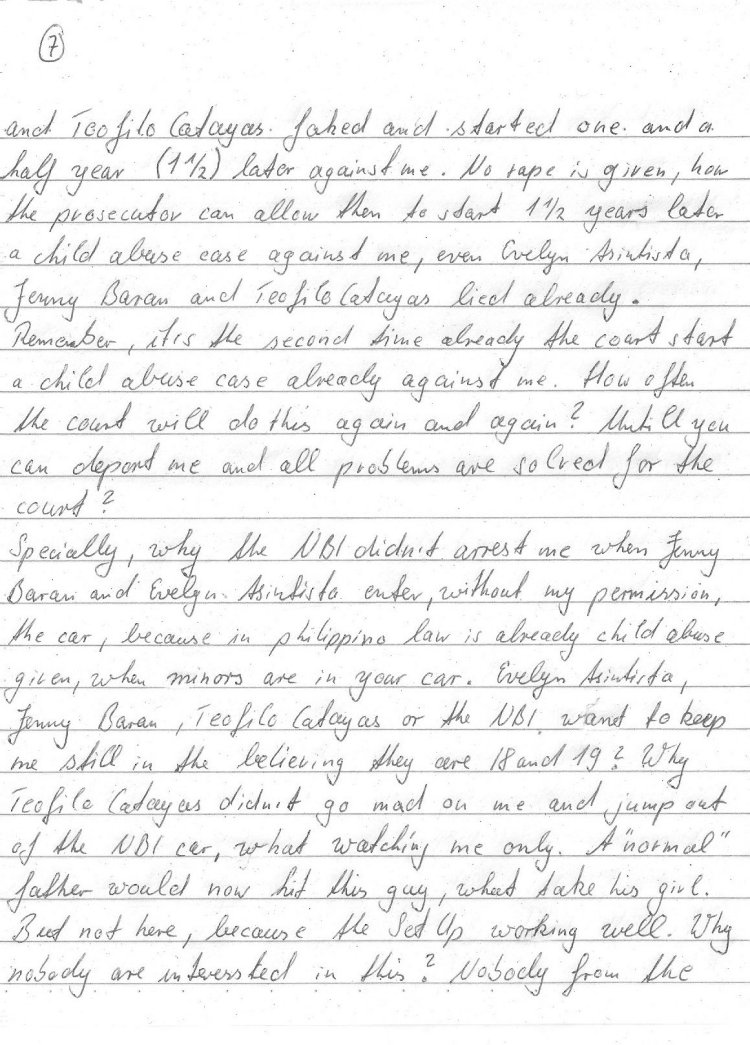 7
and Teofilo Catayas. faked and started one and a
half year (1 1/2) later against me. No rape is given, how
the prosecutor can allow then to start 1 1/2 years later
a child abuse case against me, even Evelyn Asintista,
Jenny Baran and Teofilo Catayas lied already.
Remember, it is the second time already the court start
a child abuse case already against me. How often
the court will do this again and again? Untill you
can deport me and all problems are solved for the
court?
Specially, why the NBI didn't arrest me when Jenny
Baran and Evelyn Asintista enter, without my permission,
the car, because in philippino law is already child abuse
given, when minors are in your car. Evelyn Asintista,
Jenny Baran, Teofilo Catayas or the NBI want to keep
me still in the believing they are 18 and 19? Why
Teofilo Catayas didn't go mad on me and jump out
of the NBI car, what watching me only. A "normal"
father would now hit this guy, what take his girl.
But not here, because the Set Up working well. Why
nobody are interessted in this? Nobody from the